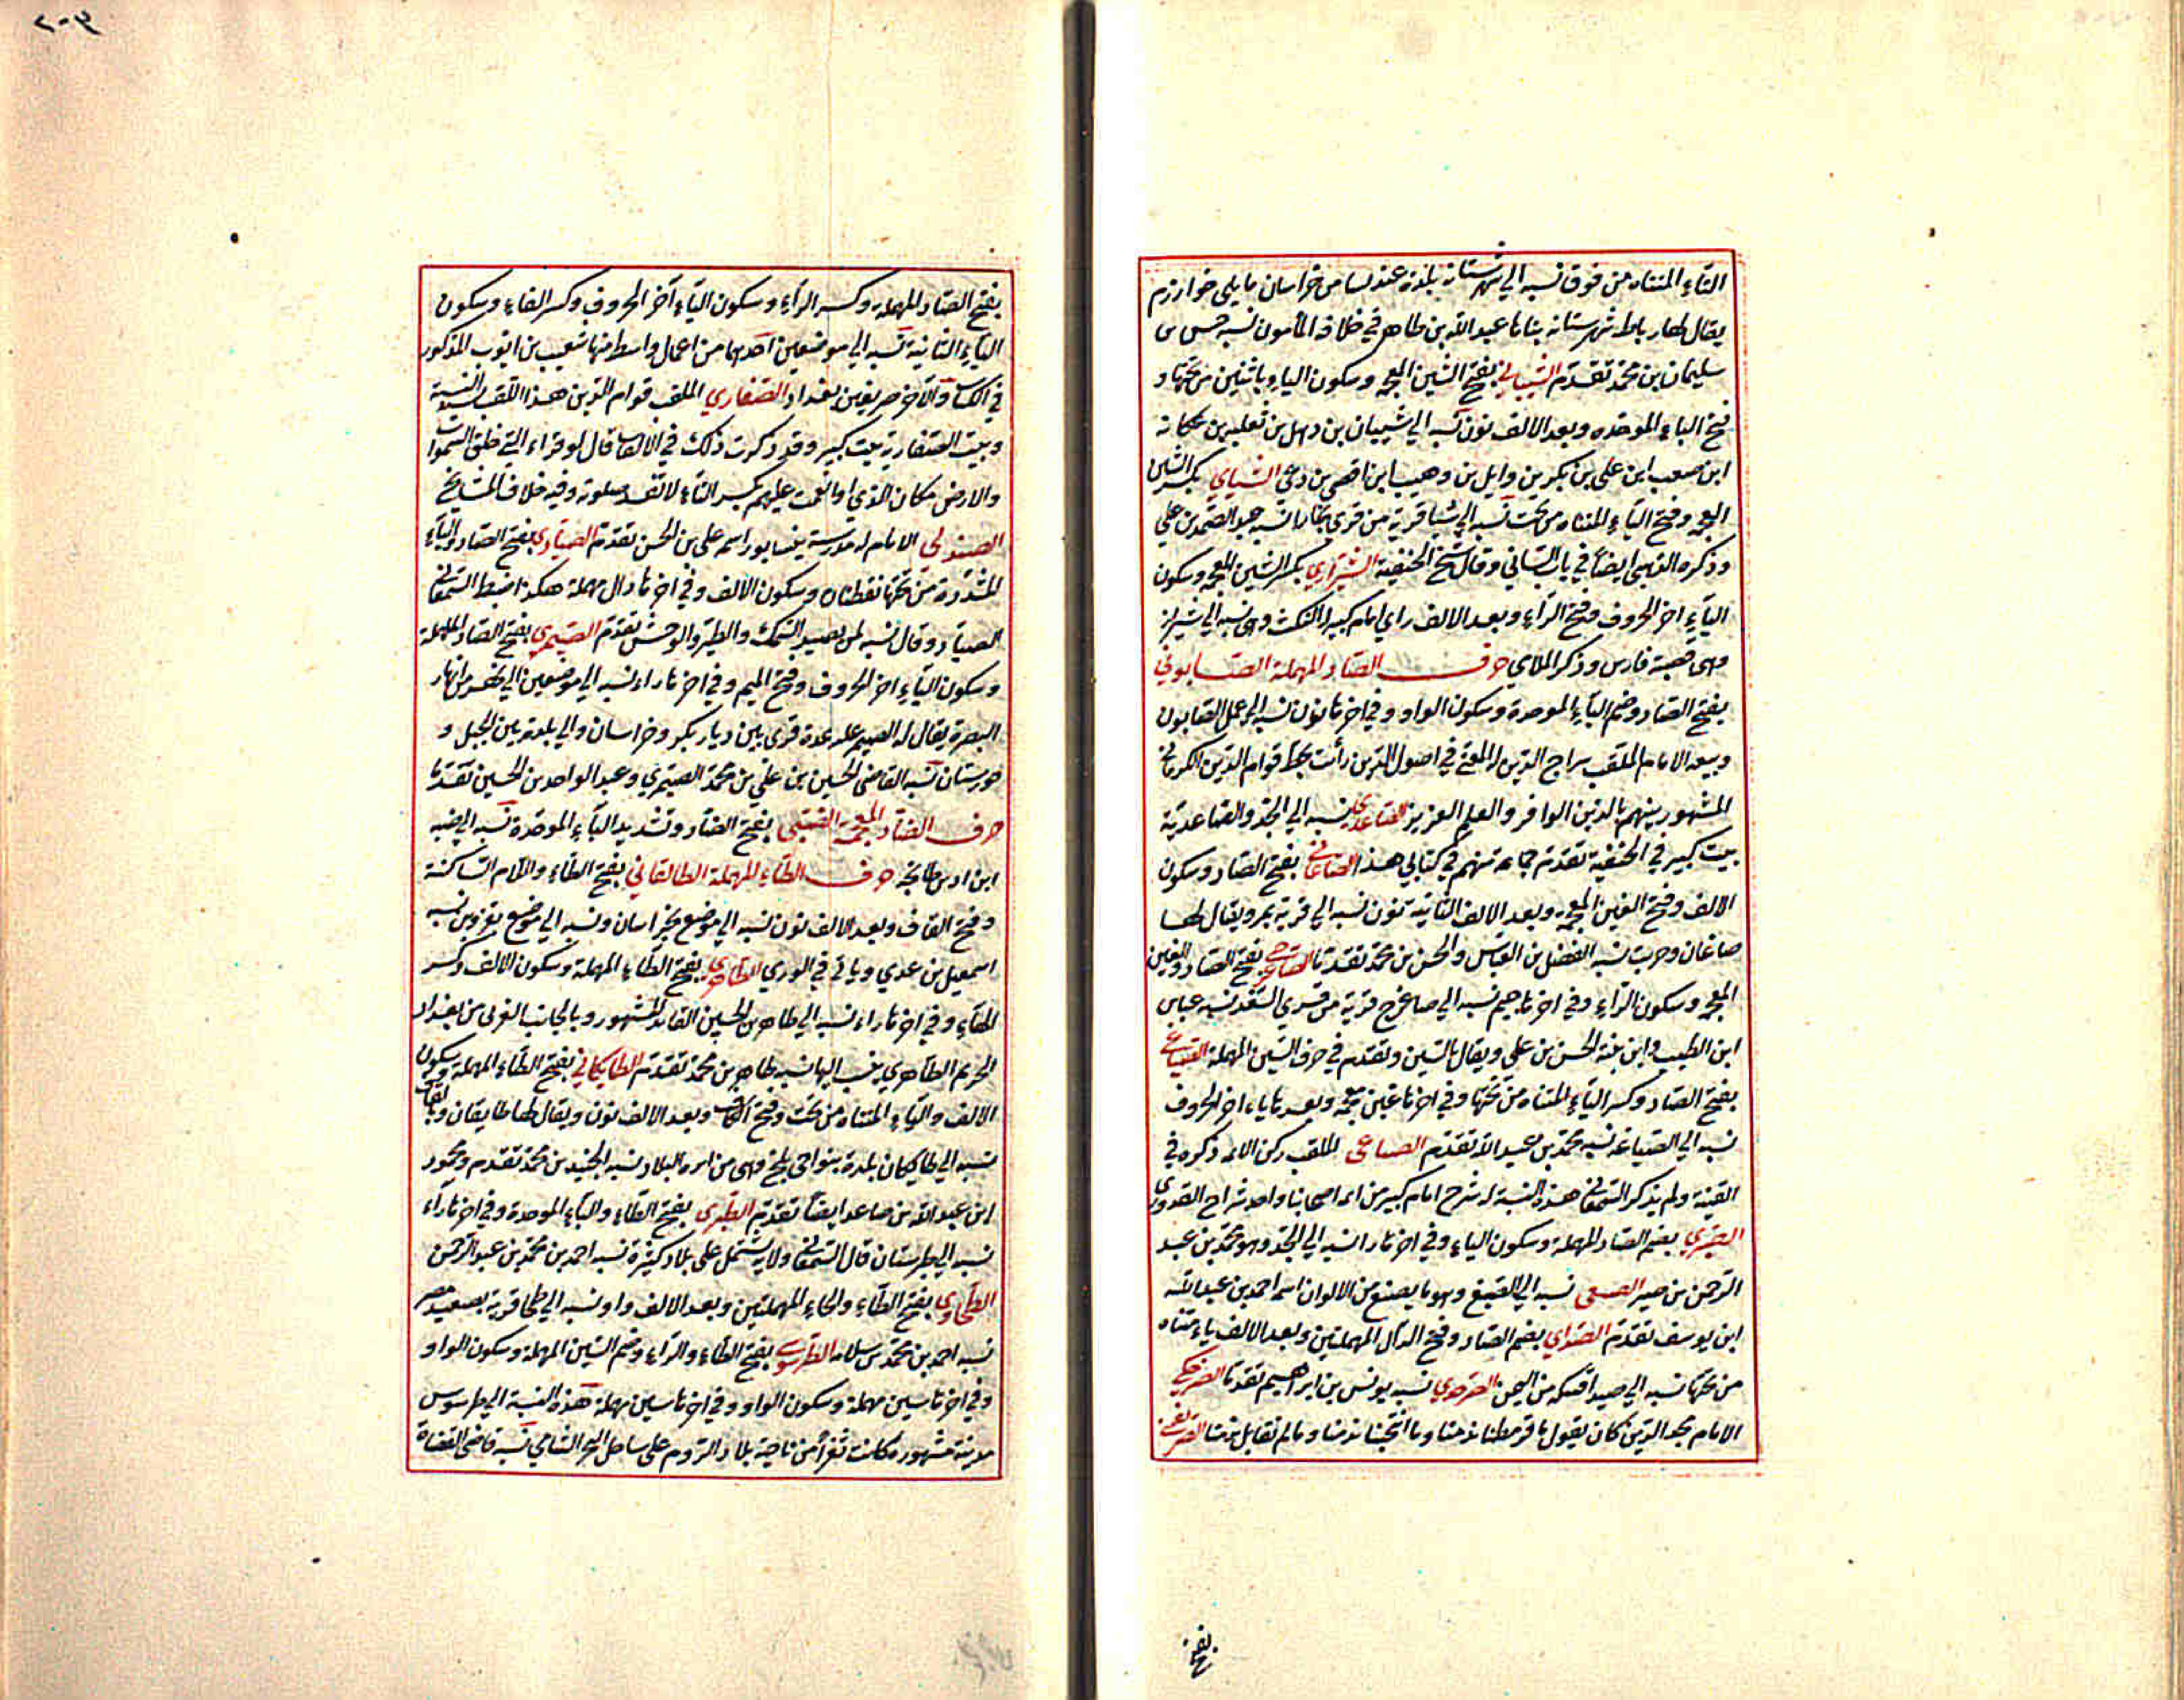 التاء المثناه من فوق نسبه الي شهرستانه بلدة عند نسا من خراسان مايلي خوارزم
يقال لها رباط شهرستانه بناها عبد الله بن طاهر في خلافة المأمون نسبه حسن بن
سليمان بن محمد تقدم الشيباني بفتح الشين المعجمه وسكون الياء باثنتين من تحتها و
فتح الباء الموحده وبعد الالف نون نسبه الي شيبان بن ذهل بن ثعلبه بن عكابه
ابن صعب ابن علي بن بكر بن وايل بن وهيب ابن اقصي بن دعي الشياي بكسر الشين
المعجمه وفتح الياء المثناه من تحت نسبه الي شيا قرية من قري بخارا نسبه عبد الصمد بن علي
وذكره الذهبي ايضاً في باب الشباني وقال شيخ الحنفية الشيرازي بكسر الشين المعجمه وسكون
الياء اخر الحروف وفتح الراء وبعد الالف زاي امام كبير له النكت وهي نسبه الي شيراز
وهي قصبة فارس وذكر الملاي حرف الصاد المهملة الصابوني
بفتح الصاد وضم الباء الموحدة وسكون الواو وفي اخرها نون نسبه الي عمل الصابون
وبيعه الامام الملقب سراج الدين له المغني في اصول الدين رأيت بخط قوام الدين الكرماني
المشهور بينهم بالدين الوافر والعلم الغزير الصاعدي نسبه الي الجد والصاعدية
بيت كبير في الحنفية تقدم جماعة منهم في كتابي هذا الصاغاني بفتح الصاد وسكون
الالف وفتح الغين المعجمه وبعد الالف الثانية نون نسبه الي قرية بمرو يقال لها
صاغان وعربت نسبه الفضل بن العباس والحسن بن محمد تقدما الصاغرجي بفتح الصاد والغين
المعجمه وسكون الراء وفي اخرها جيم نسبه الي صاغرج قرية من قري السغد نسبه عباس
ابن الطيب وابن بنته الحسن بن علي ويقال بالسين وتقدم في حرف السين المهملة الصياغي
بفتح الصاد وكسر الياء المثناه من تحتها وفي اخرها غين معجمه وبعدها ياء اخر الحروف
نسبه الي الصياغه نسبه محمد بن عبيد الله تقدم الصباغي الملقب ركن الائمه ذكره في
القنية ولم يذكر السمعاني هذه النسبة له شرح امام كبير من ائمه اصحابنا واحد شراح القدوري
الصبري بضم الصاد المهملة وسكون الياء وفي اخرها را نسبه الي الجد وهو محمد بن عبد
الرحمن بن صبر الصبغي نسبه الي الصبغ وهو ما يصبغ من الالوان اسمه احمد بن عبد الله
ابن يوسف تقدم الصداي بضم الصاد وفتح الدال المهملتين وبعد الالف ياء مثناه
من تحتها نسبه الي صيدا قبيله من اليمن نسبه يونس بن ابراهيم تقدما
الامام مجد الدين كان يقول
بفتح
٢٠٣
بفتح الصاد المهملة وكسر الراء وسكون الياء آخر الحروف وكسر الفاء وسكون
الياء الثانية نسبه الي موضعين احدهما من اعمال واسط منها شعيب بن ايوب المذكور
في الكتاب والآخر صريفين بغداد الصفاري الملقب قوام الدين هذا اللقب النسبة
وبيت الصفارية بيت كبير وقد ذكرت ذلك في الالقاب قال لو قراء التي خلق السموات
والارض مكان الذي او انعمت عليهم بكسر التاء لا تفسد صلوته وفيه خلاف المشايخ
الصندلي الامام له مدرسة بنيسابور اسمه علي بن الحسن تقدم الصيادي بفتح الصاد والياء
المشددة من تحتها نقطتان وسكون الالف وفي اخرها دال مهملة هكذا ضبطه السمعاني
الصياد وقال نسبه لمن يصيد السمك والطير والوحش تقدم الصيمري بفتح الصاد المهملة
وسكون الياء اخر الحروف وفتح الميم وفي اخرها راء نسبه الي موضعين الي نهر من انهار
البصرة يقال له الصيمر عليه عدة قري بين ديار بكر وخراسان والي بلدة بين الجبل و
خوزستان نسبه القاضي الحسين ابن علي بن محمد الصيمري وعبد الواحد بن الحسين تقدما
حرف الضاد المعجمه الضبي بفتح الضاد وتشديد الباء الموحدة نسبه الي ضبه
ابن اد بن طابخه حرف الطاء المهملة الطالقاني بفتح الطاء واللام الساكنة
وفتح القاف وبعد الالف نون نسبه الي موضع بخراسان ونسبه الي موضع بقزوين نسبه
اسمعيل بن عدي وياتي في الوري الطاهري بفتح الطاء المهملة وسكون الالف وكسر
الهاء وفي اخرها راء نسبه الي طاهر بن الحسين القايد المشهور وبالجانب الغربي من بغداد
الحريم الطاهري ينسب اليها نسبه طاهر بن محمد تقدم الطايكاني بفتح الطاء المهملة وسكون
الالف والياء المثناه من تحت وفتح الكاف وبعد الالف نون ويقال لها طايقان وبالقاف
نسبه الي طايكان بلدة بنواحي بلخ وهي من انزه البلاد نسبه الجنيد بن محمد تقدم ومحمود
ابن عبد الله بن صاعد ايضا تقدم الطبري بفتح الطاء والباء الموحدة وفي اخرها راء
نسبه الي طبرستان قال السمعاني ولاية تشتمل علي بلاد كثيرة نسبه احمد بن محمد بن عبد الرحمن
الطحاوي بفتح الطاء والحاء المهملتين وبعد الالف واو نسبه الي طحا قرية بصعيد مصر
نسبه احمد بن محمد بن سلامه الطرسوسي بفتح الطاء والراء وضم السين المهملة وسكون الواو
وفي اخرها سين مهملة وسكون الواو وفي اخرها سين مهملة هذه النسبة الي طرسوس
مدينة مشهوره كانت ثغراً من ناحية بلاد الروم علي ساحل البحر الشامي نسبه قاضي القضاة